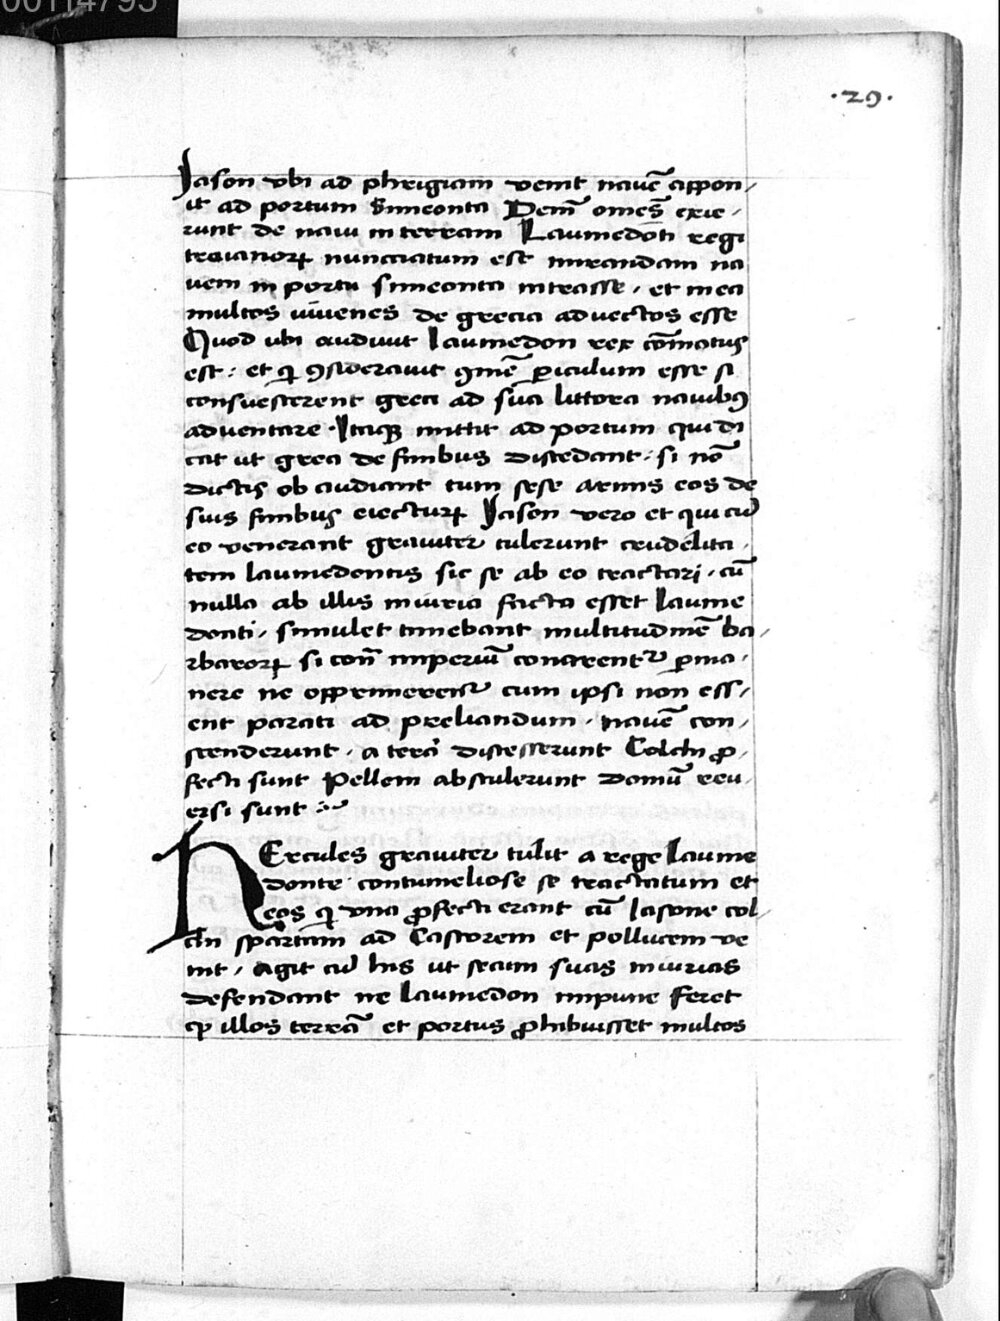 00114795
.29.
Iason vbi ad phrigiam venit nauē appon/
it ad portum Simeonta Demū omēs exie/
runt de naui in terram Laumedōti regi
troianorꝝ nunciatum est mirandam na
uem in portu simeonta intrasse / et in ea
multos iuuenes de grecia aduectos esse
Quod ubi audiuit laumedon rex cōmotus
est: et ꝙ ꝯsiderauit ꝯmūē ꝑiculum esse si
consuescerent greci ad sua littora nauibꝯ
aduentare. Itaqꝫ mittit ad portum qui di
cat ut greci de finibus discedant: si nō
dictis ob audiant tum sese armis eos de
suis finibus eiecturꝝ Iason vero et qui cū
eo venerant grauiter tulerunt crudelita/
tem laumedontis sic se ab eo tractari. cū
nulla ab illis iniuria facta esset laume
donti / simulet timebant multitudinē ba/
rbarorꝝ si cont̄ imperiū conarentᷣ ꝑma/
nere ne opprimerentᷣ cum ipsi non ess/
ent parati ad preliandum / nauē con/
scenderunt . a terā discesserunt Colchi ꝓ/
fecti sunt Pellem abstulerunt domū reu/
ersi sunt
HErcules grauiter tulit a rege laume
donte contumeliose se tractatum et
eos ꝙ vna ꝓfecti erant cū Iasone col
chi spartam ad Castorem et pollucem ve
nit / agit cū his ut secum suas iniurias
defendant ne laumedon impune feret
ꝙ illos terrā et portus ꝓhibuisset multos